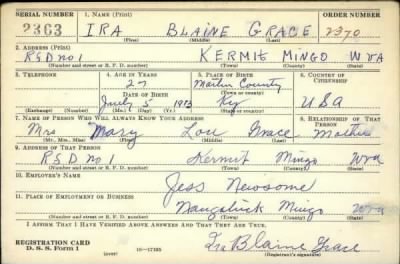 SERIAL NUMBER 1. NAME (Print) ORDER NUMBER
2363 IRA BLAINE GRACE 2370
(First) (Middle) (Last)
2. ADDRESS (Print)
RFD no 1 KERMIT MINGO WVA
(Number and street or R. F. D. number) (Town) (County) (State)
3. TELEPHONE 4. AGE IN YEARS 5. PLACE OF BIRTH 6. COUNTRY OF CITIZENSHIP
27 Martin County
DATE OF BIRTH (Town or county)
July 5 1913 Ky USA
(Exchange) (Number) (Mo.) (Day) (Yr.) (State or country)
7. NAME OF PERSON WHO WILL ALWAYS KNOW YOUR ADDRESS 8. RELATIONSHIP OF THAT PERSON
Mrs Mary Lou Grace Mother
(Mr., Mrs., Miss) (First) (Middle) (Last)
9. ADDRESS OF THAT PERSON
RFD no 1 Kermit Mingo Wva
(Number and street or R. F. D. number) (Town) (County) (State)
10. EMPLOYER'S NAME
Jess Newsome
11. PLACE OF EMPLOYMENT OR BUSINESS
Naugatuck Mingo Wva
(Number and street or R. F. D. number) (Town) (County) (State)
I AFFIRM THAT I HAVE VERIFIED ABOVE ANSWERS AND THAT THEY ARE TRUE.
REGISTRATION CARD
D. S. S. Form 1 16—17105 Ira Blaine Grace
(over) (Registrant's signature)